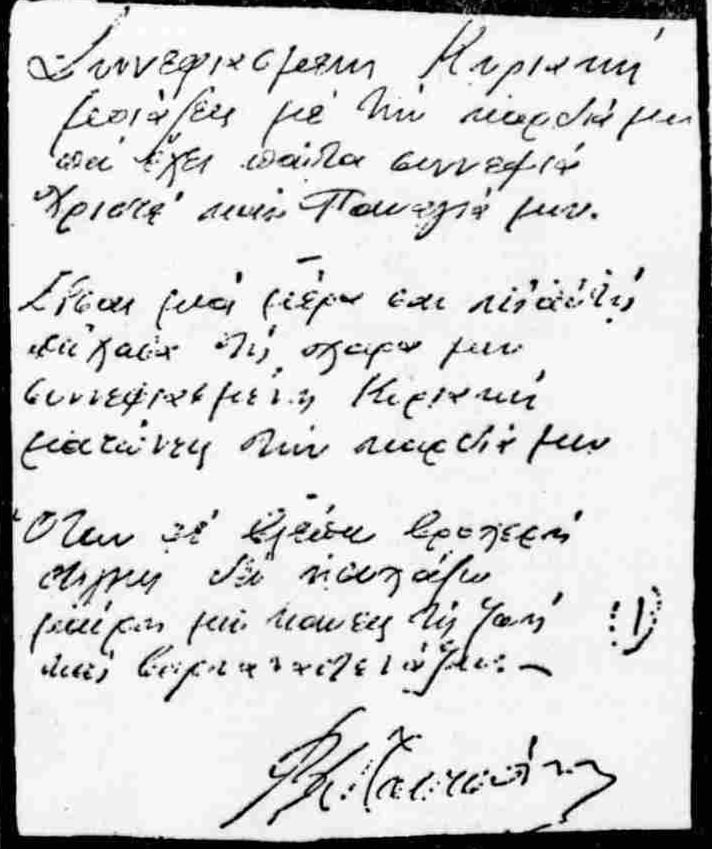 Συννεφιασμένη Κυριακή
μοιάζεις με την καρδιά μου
που έχει πάντα συννεφιά
Χριστέ και Παναγιά μου.
Είσαι μιά μέρα σαν κι' αυτή
που χασα την χαρα μου
συννεφιασμένη Κυριακή
ματώνεις την καρδιά μου
Όταν σέ βλέπω βροχερή
στιγμή δέν ησυχάζω
μαύρη μού κανεις τη ζωή (1)
καί βαρυαναστενάζω.